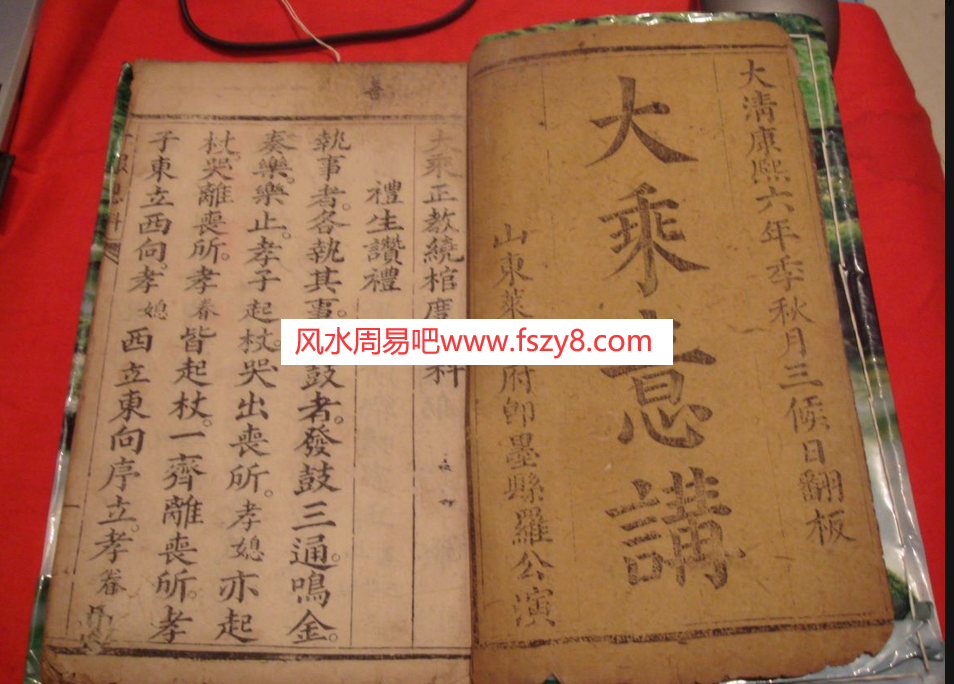 大清康熙六年季秋月三候日翻板
大乘意講
山東萊府即墨縣羅公演
大乘正教繞棺度科
禮生讚禮
執事者。各執其事。鼓者。發鼓三通。鳴金。
奏樂。樂止。孝子起杖。哭出喪所。孝媳亦起
杖。哭離喪所。孝眷皆起杖。一齊離喪所。孝
子東立西向。孝媳西立東向序立。孝眷
善
风水周易吧www.fszy8.com